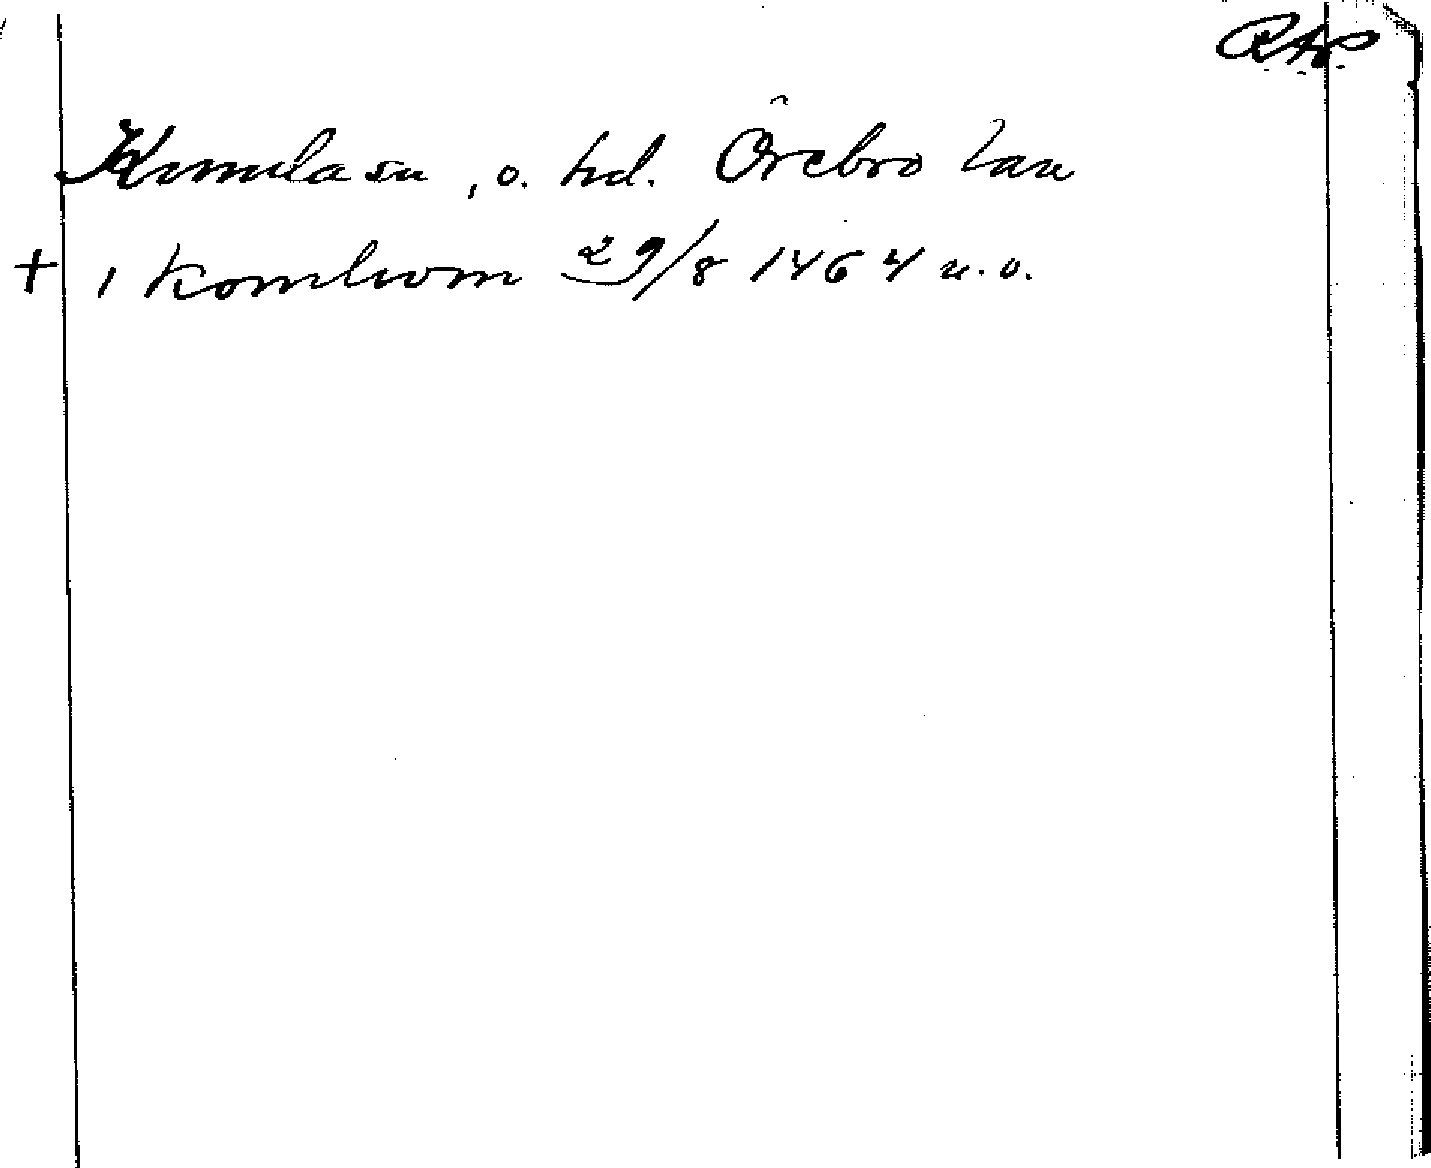 RAp
Kumla sn, o. hd. Örebro län
+ i Komlwom 29/8 1464 u. o.